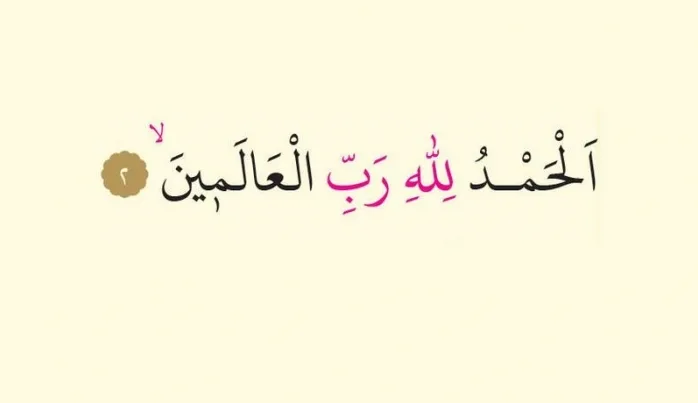 اَلْحَمْدُ لِلّٰهِ رَبِّ الْعَالَم۪ينَۙ ﴿٢﴾